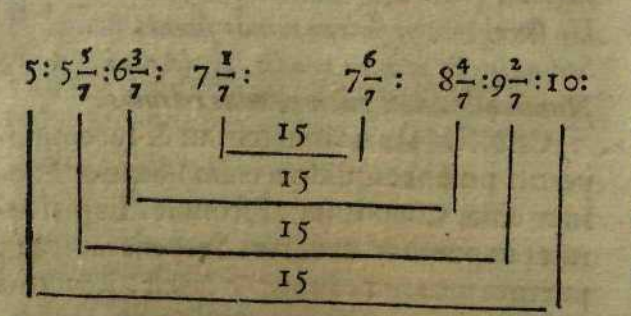 5: 5 5/7 : 6 3/7 : 7 1/7 : 7 6/7 : 8 4/7 : 9 2/7 : 10:
15
15
15
15